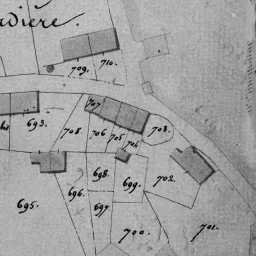 709.
710.
707
693.
708.
706
705
704
703.
698.
702.
699.
696.
695.
697
700.
701.